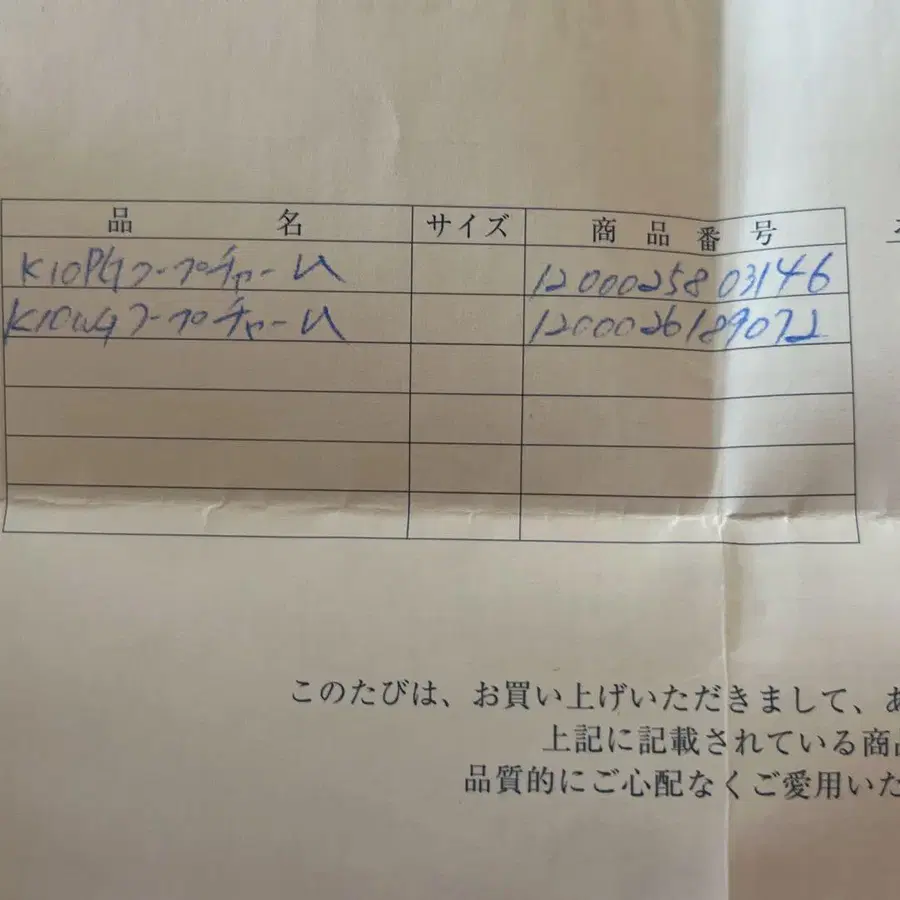 品名 サイズ 商品番号
K10PGフープチャーム 1200025803146
K10WGフープチャーム 1200026189072
このたびは、お買い上げいただきまして、あ
上記に記載されている商品
品質的にご心配なくご愛用いた